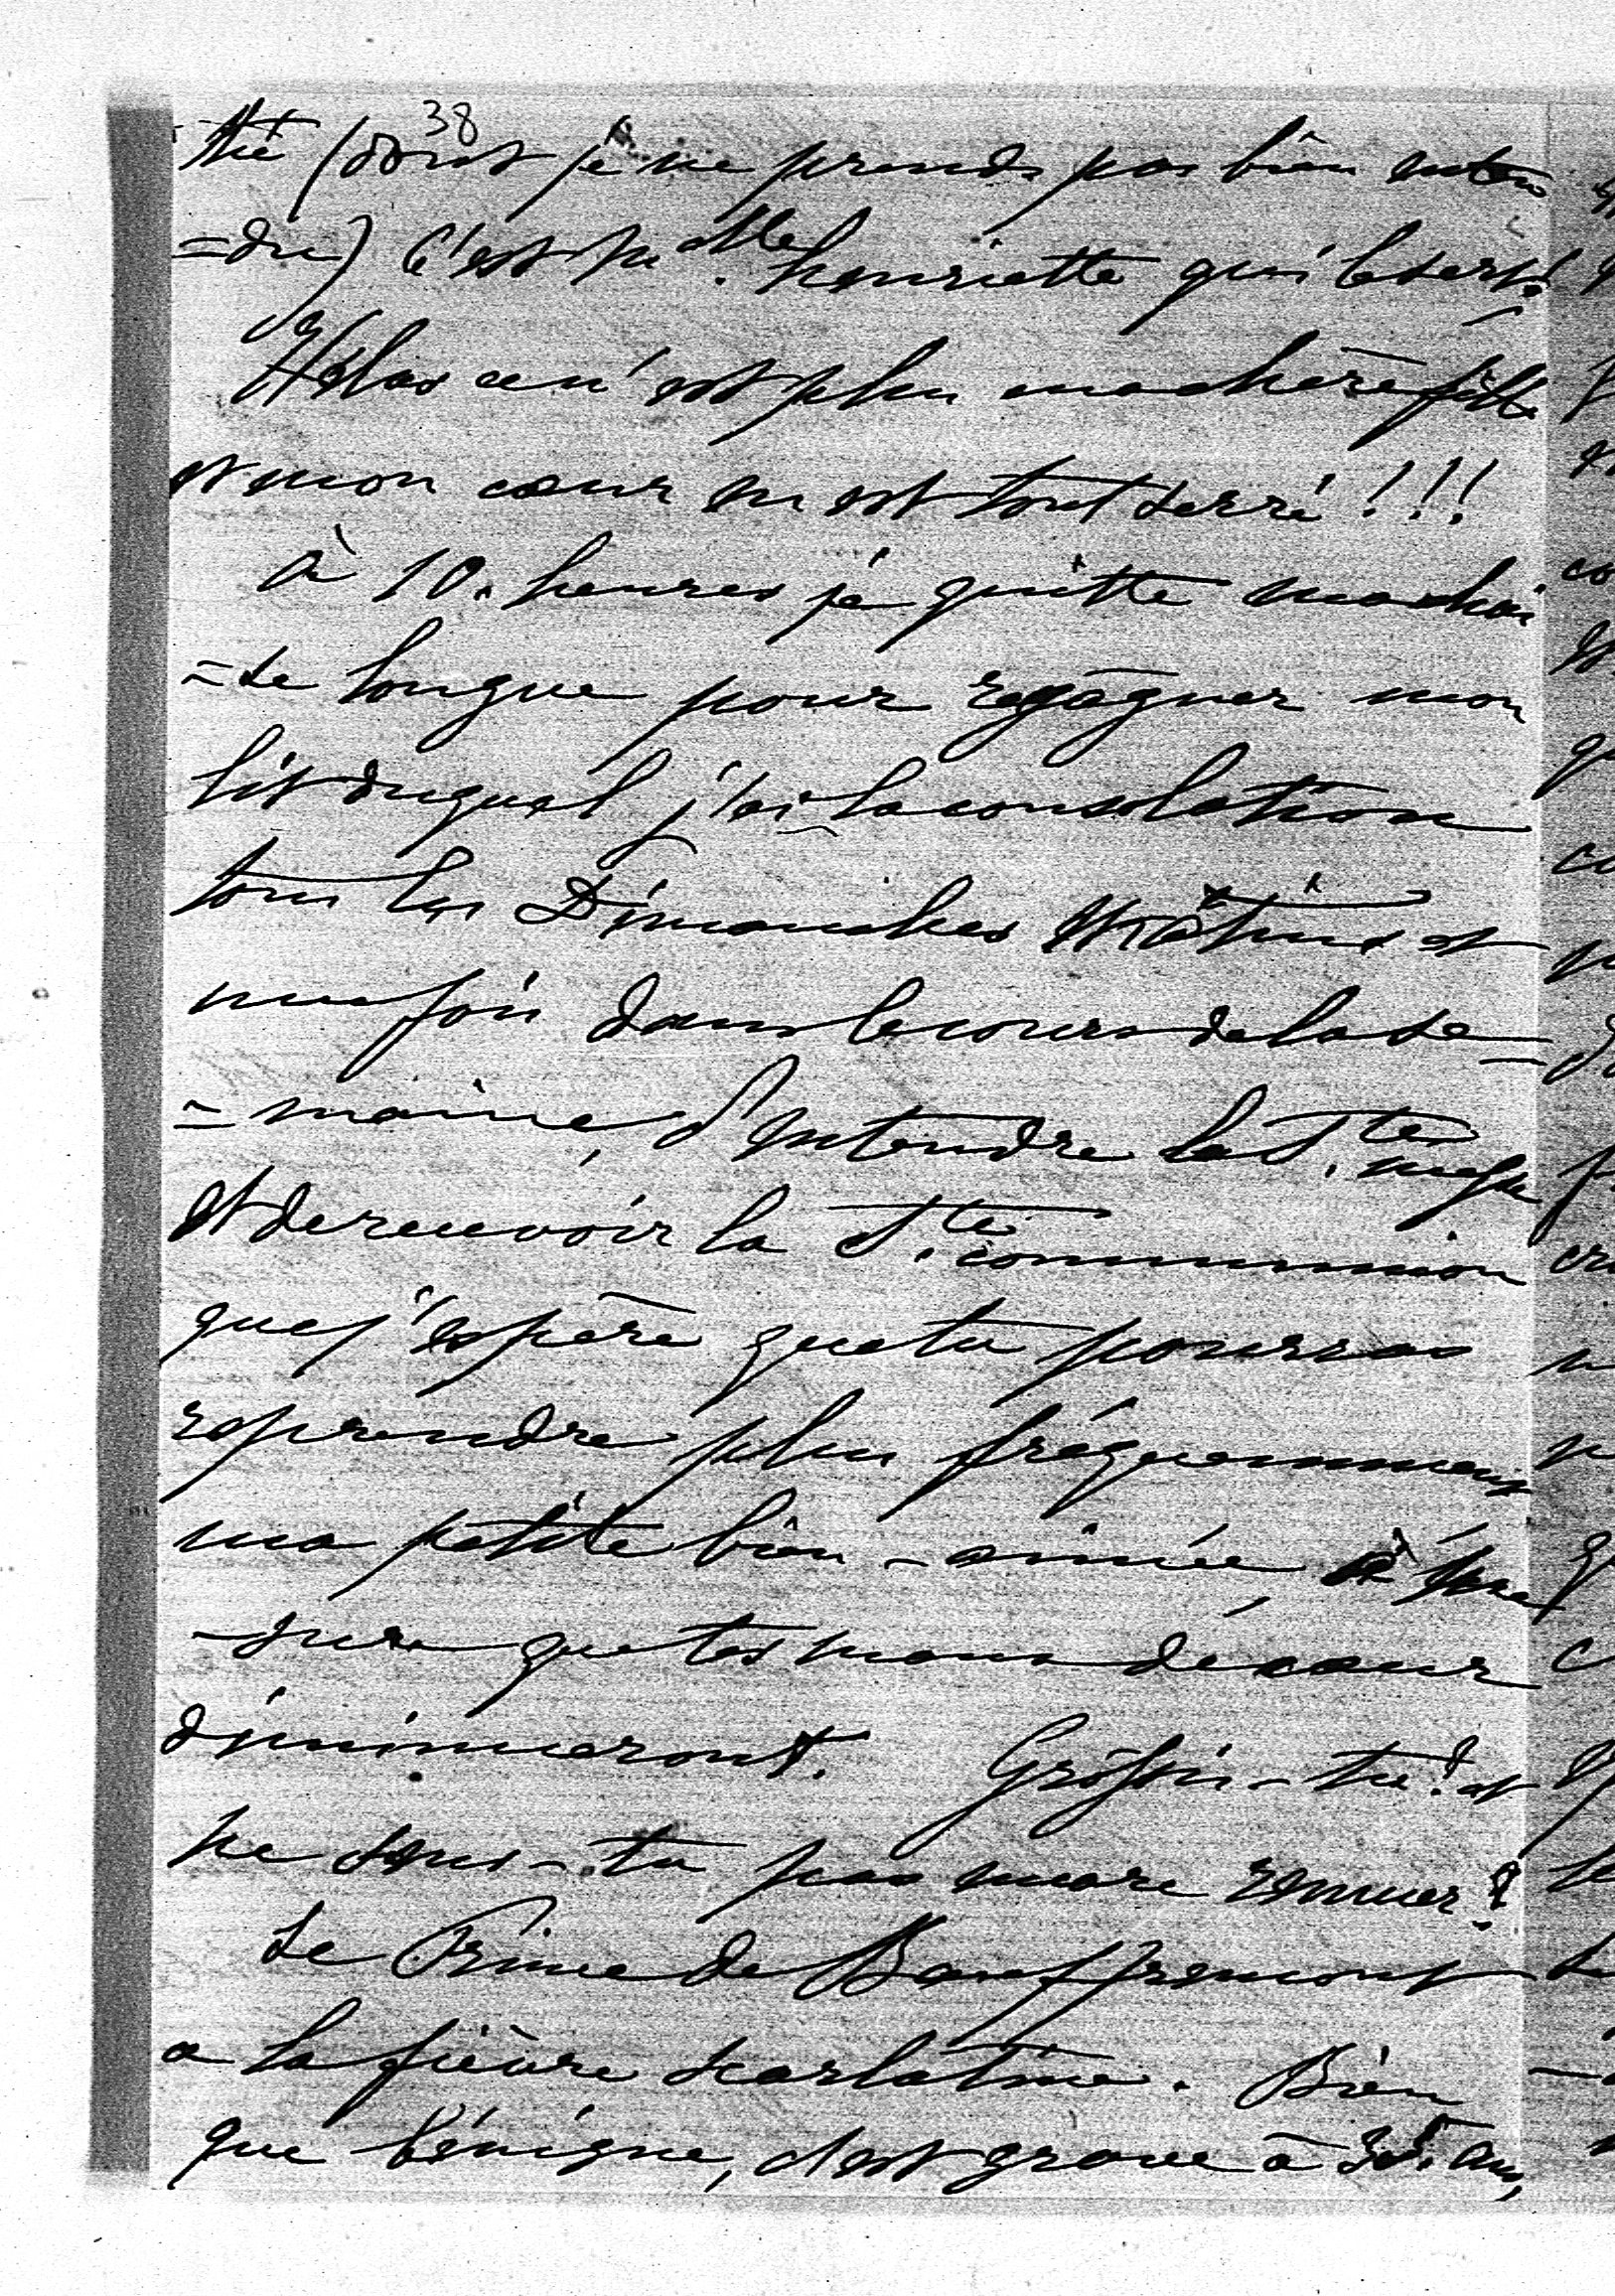 38
thé (dont je ne prends pas bien enten
=du) C'est Melle. henriette qui le sert!
Hélas ce n'est plus ma chère fille
et mon cœur en est tout serré!!!
à 10. heures je quitte ma chai
=se longue pour regagner mon
lit duquel j'ai la consolation
tous les Dimanches Matins et
une fois dans le cours de la se=
=maine, d'entendre la Ste. messe
et de recevoir la Ste. communion
que j'espère que tu pourras
reprendre plus fréquemment
ma petite bien-aimée, à me
-sure que tes maux de cœur
diminueront. Grossis-tu? et
ne sens-tu pas encore remuer?
Le Prince de Bauffremont
a la fièvre scarlatine. Bien
que bénigne, c'est grave à ans,